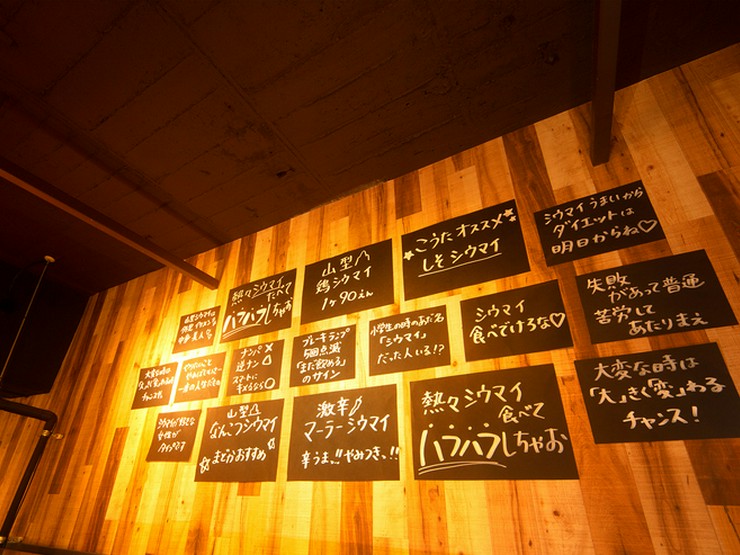 シウマイうまいから
ダイエットは
明日からね♡
★こうたオススメ★
しそシウマイ
山型
鶏シウマイ
1ヶ90えん
熱々シウマイ
たべて
ハフハフしちゃお
失敗
があって普通
苦労して
あたりまえ
シウマイ
食べてけろな♡
小学生の時のあだ名
「シウマイ」
だった人いる!?
ブレーキランプ
5回点滅
「まだ飲める」
のサイン
ナンパ×
逆ナン△
スマートに
大変な時は
「大」きく「変」わる
チャンス!
熱々シウマイ
食べて
ハフハフしちゃお
激辛
マーラーシウマイ
辛うま!!やみつき!!
山型
なんこつシウマイ
☆まどかおすすめ☆
大変な時は
チャンス
シウマイが好きな
女性が
タイプです